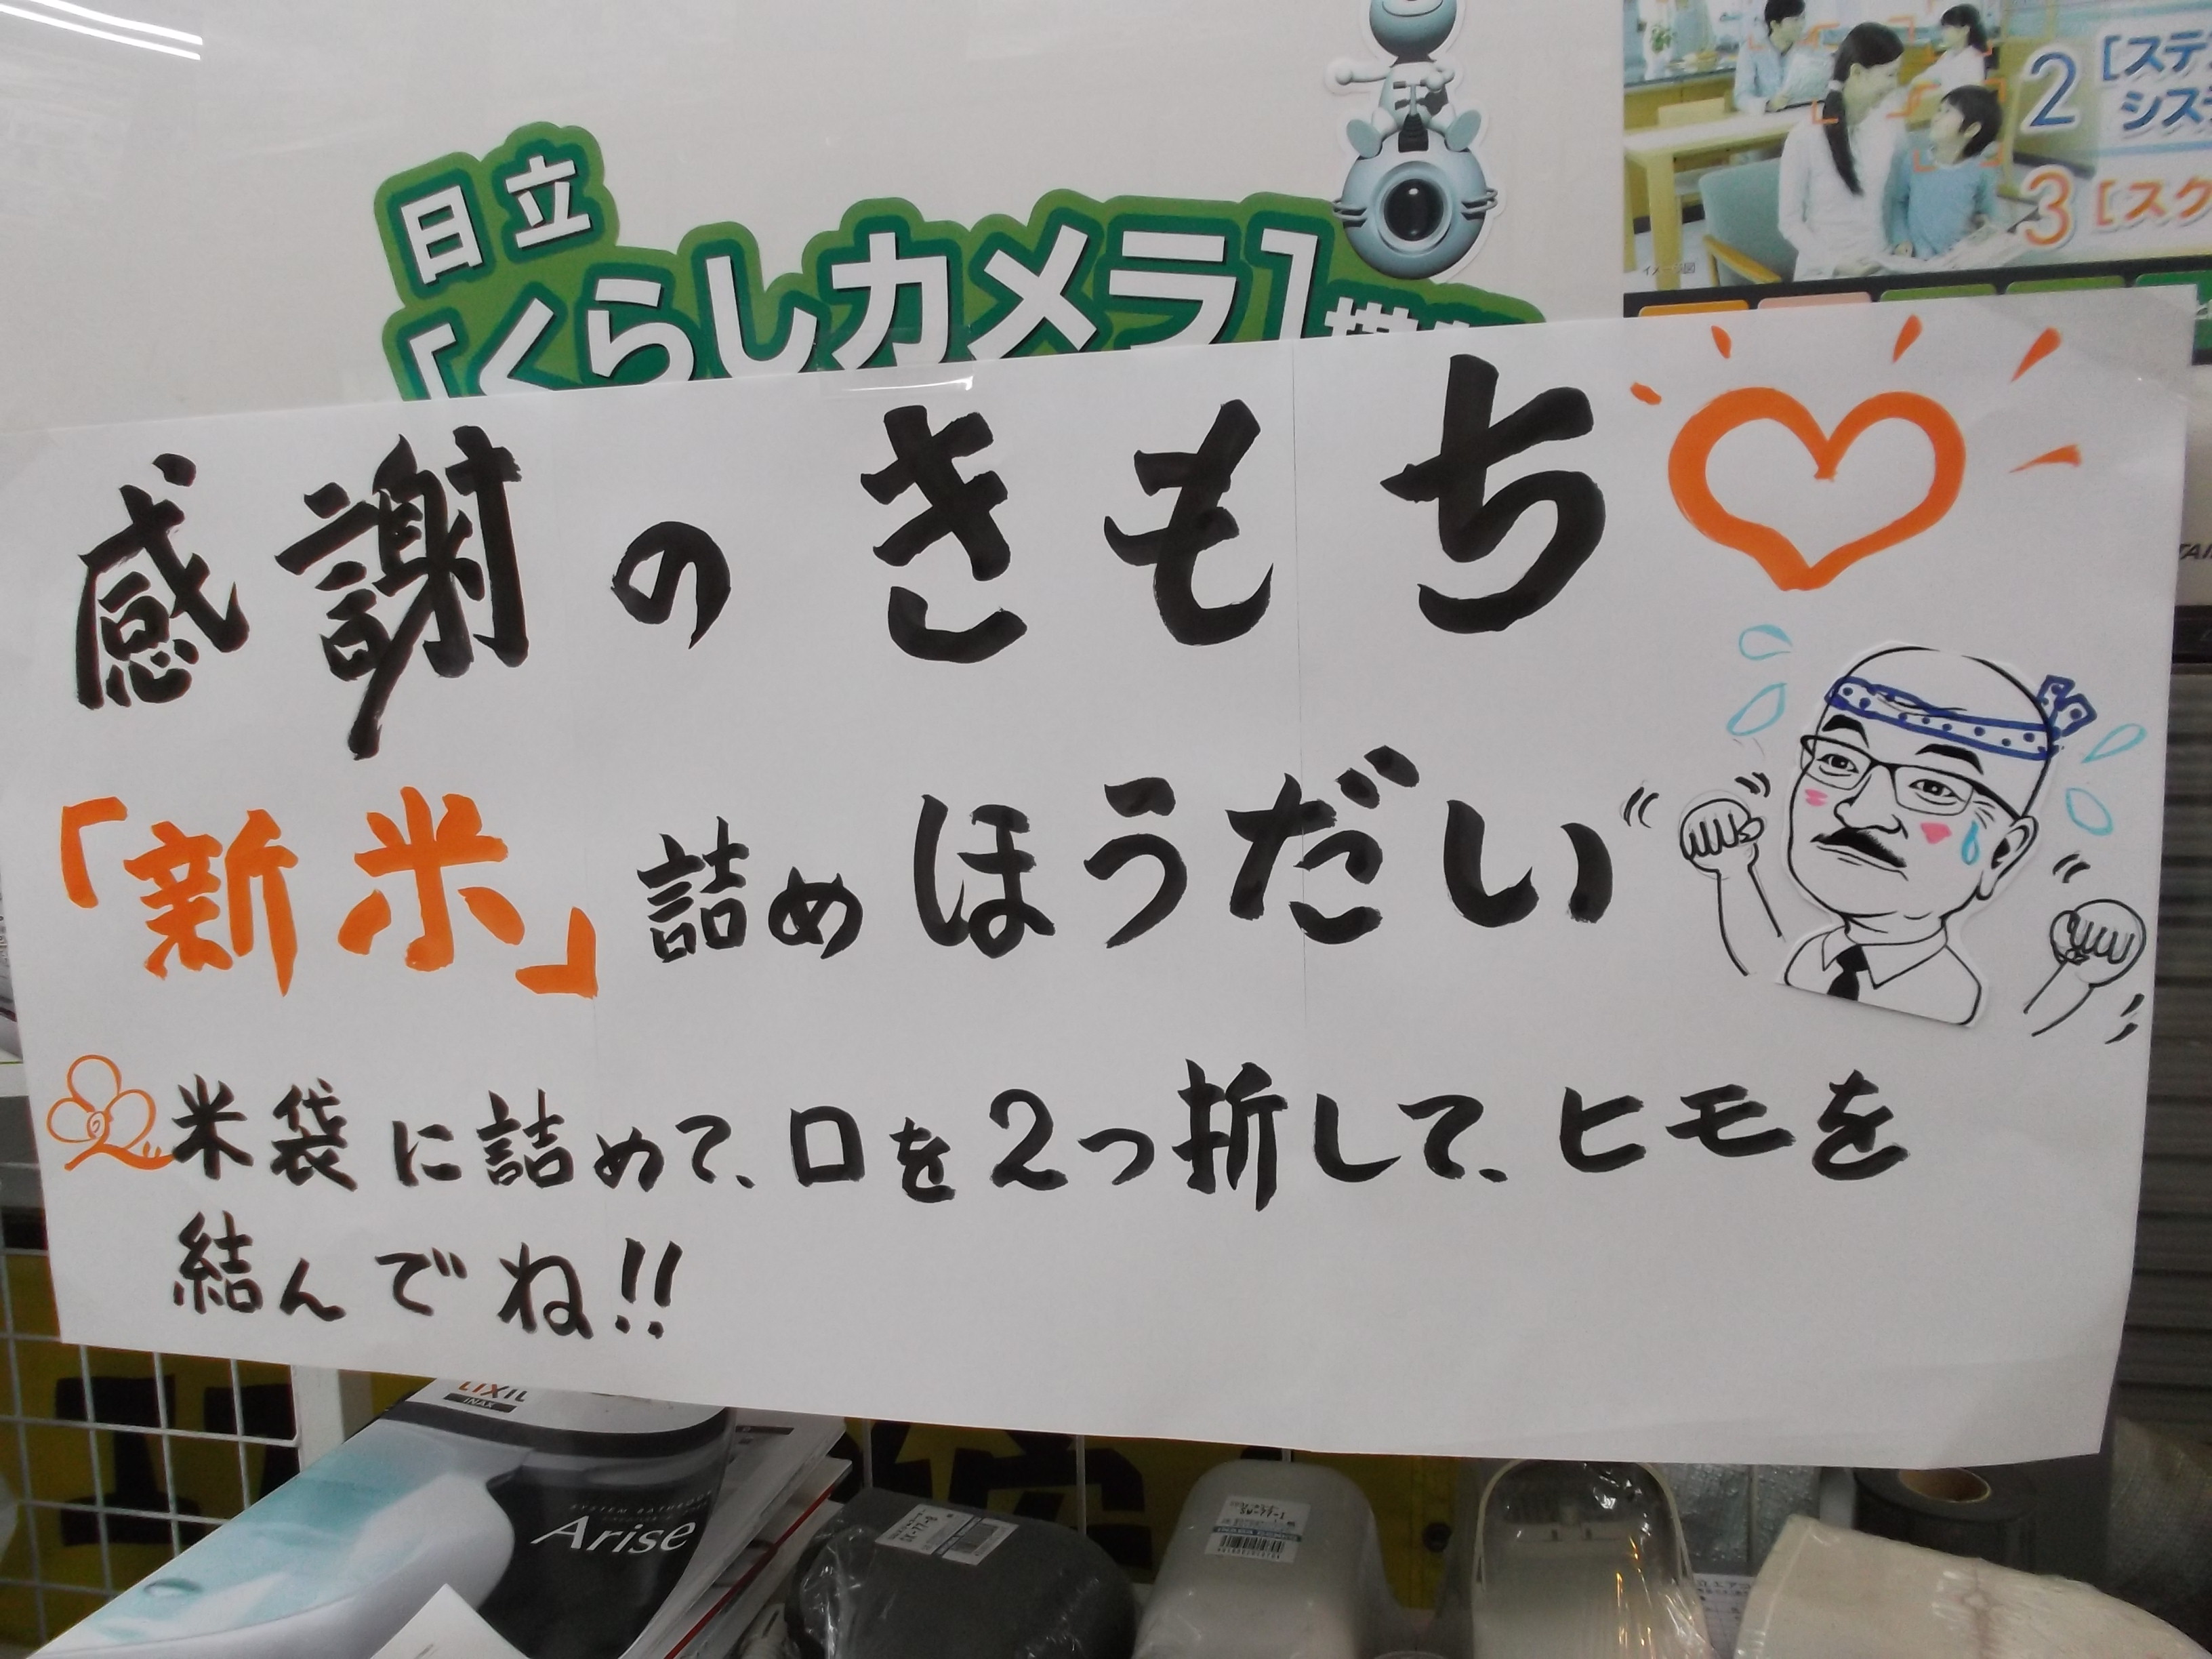 日立
「くらしカメラ」搭
2 [ステ
シス
3 [スク
イメージ図
感謝のきもち
「新米」詰めほうだい
米袋に詰めて、口を2つ折して、ヒモを
結んでね!!
LIXIL
INAX
Arise